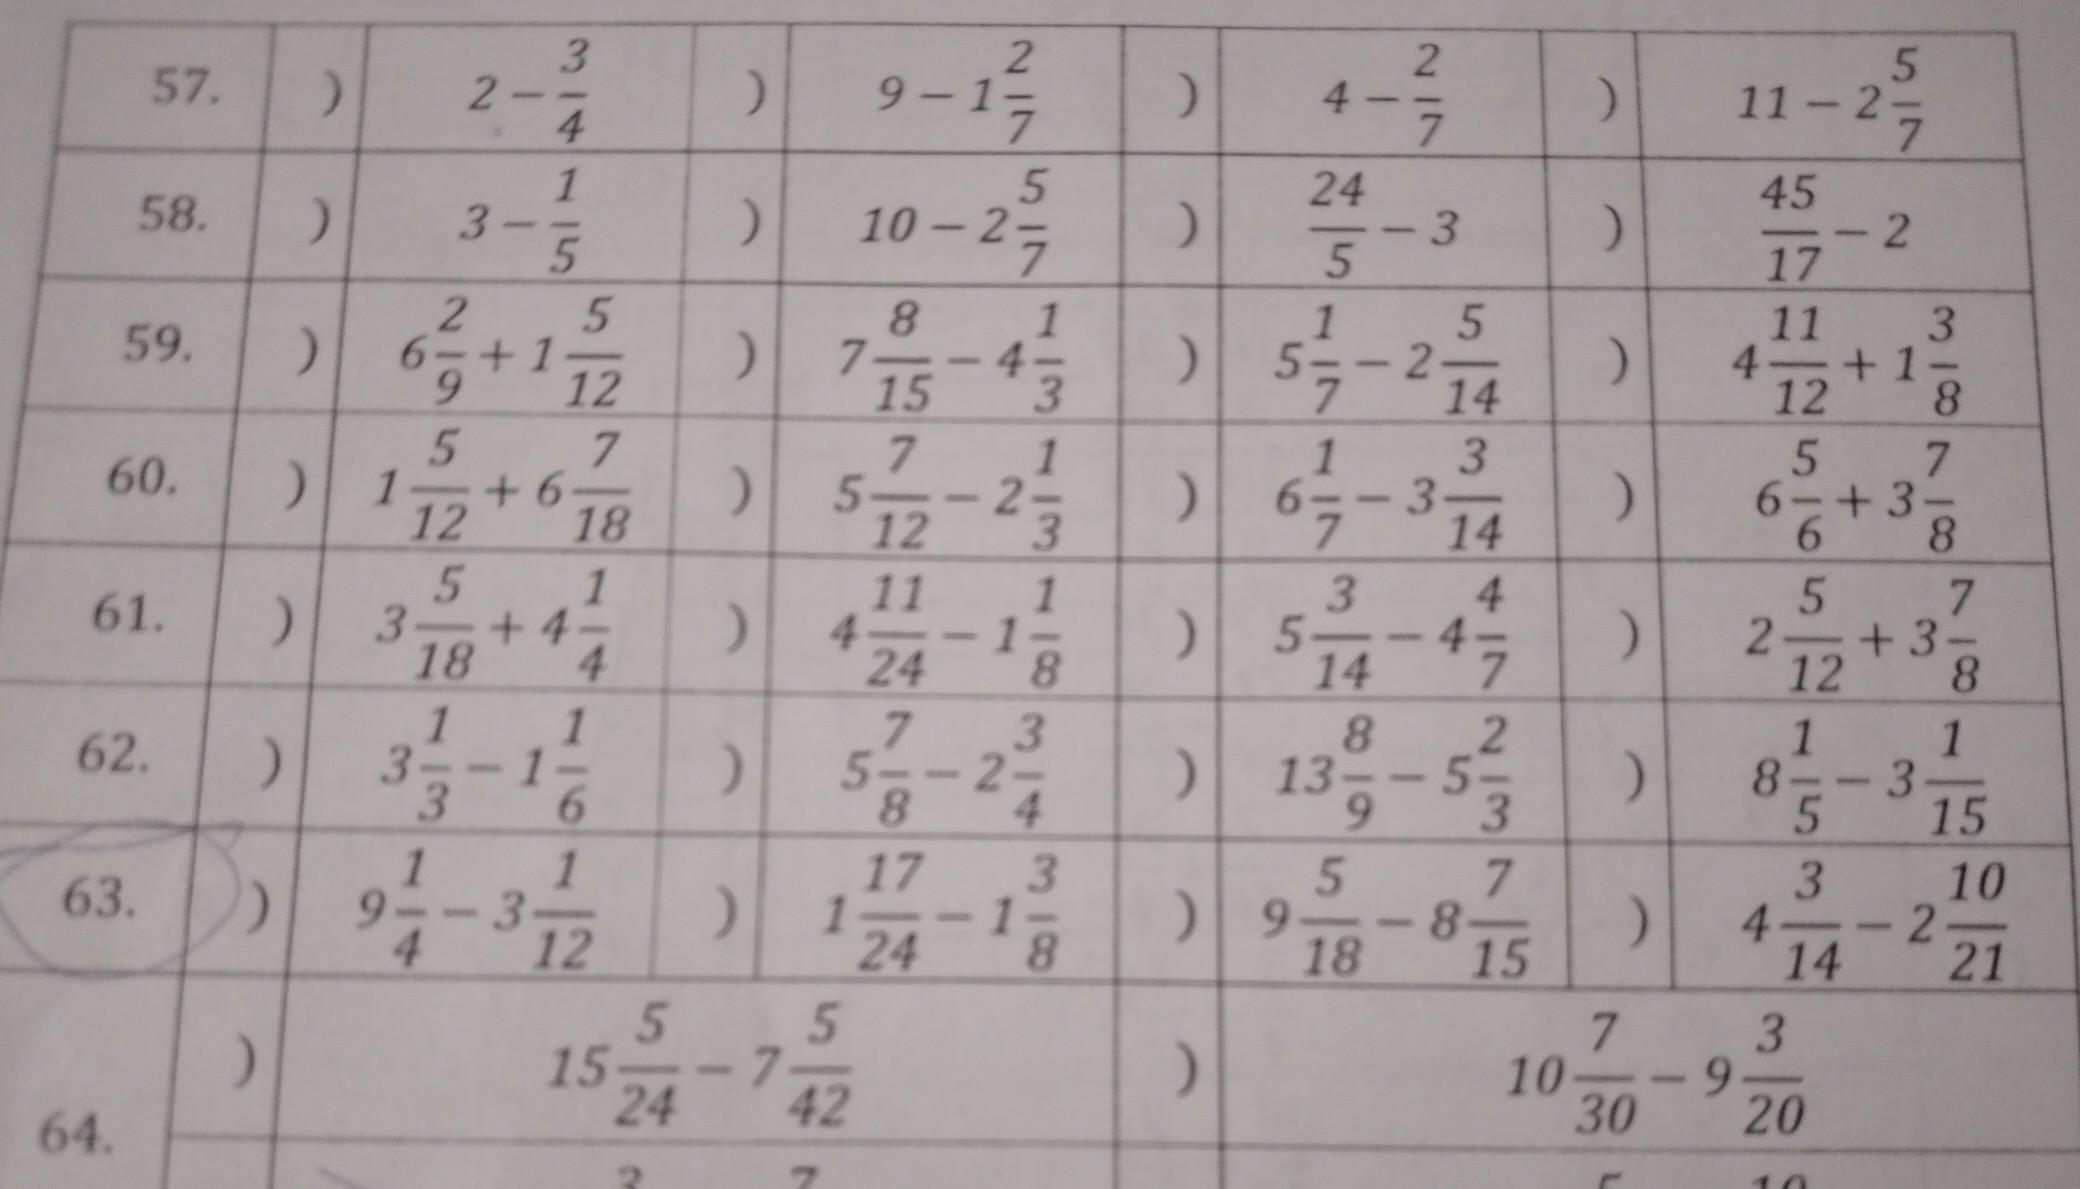 57. ) 2 − 3/4 ) 9 − 1 2/7 ) 4 − 2/7 ) 11 − 2 5/7
58. ) 3 − 1/5 ) 10 − 2 5/7 ) 24/5 − 3 ) 45/17 − 2
59. ) 6 2/9 + 1 5/12 ) 7 8/15 − 4 1/3 ) 5 1/7 − 2 5/14 ) 4 11/12 + 1 3/8
60. ) 1 5/12 + 6 7/18 ) 5 7/12 − 2 1/3 ) 6 1/7 − 3 3/14 ) 6 5/6 + 3 7/8
61. ) 3 5/18 + 4 1/4 ) 4 11/24 − 1 1/8 ) 5 3/14 − 4 4/7 ) 2 5/12 + 3 7/8
62. ) 3 1/3 − 1 1/6 ) 5 7/8 − 2 3/4 ) 13 8/9 − 5 2/3 ) 8 1/5 − 3 1/15
63. ) 9 1/4 − 3 1/12 ) 1 17/24 − 1 3/8 ) 9 5/18 − 8 7/15 ) 4 3/14 − 2 10/21
64. ) 15 5/24 − 7 5/42 ) 10 7/30 − 9 3/20